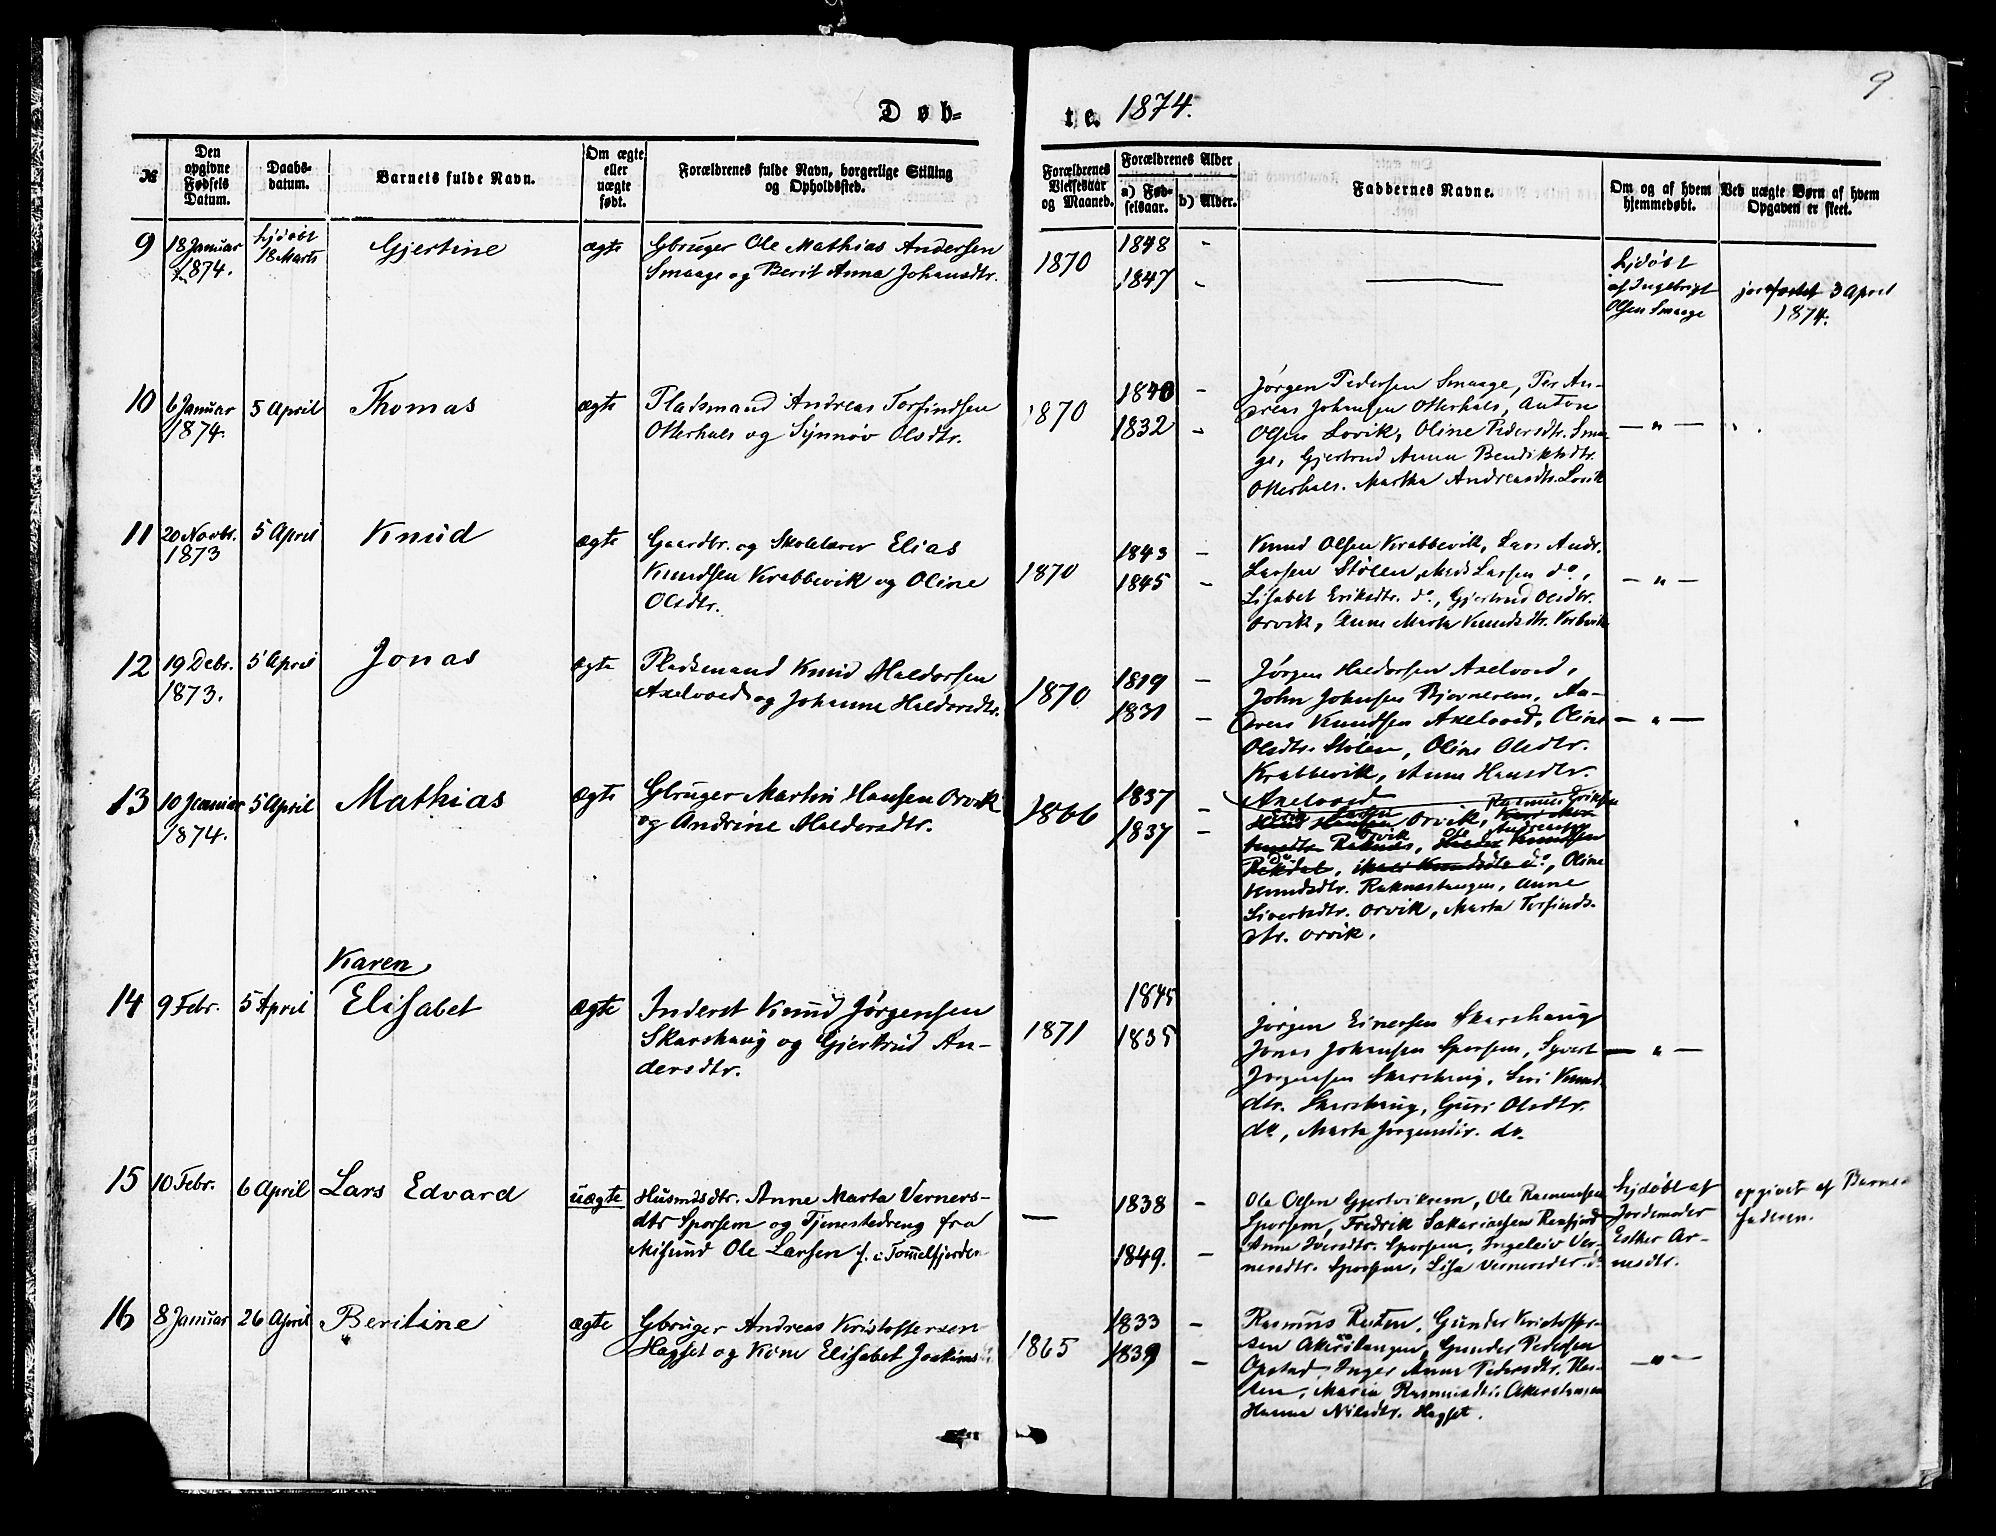 9
Døb-
te. 1874.
№
Den opgivne Fødsels Datum.
Daabs-datum.
Barnets fulde Navn.
Om ægte eller uægte født.
Forældrenes fulde Navn, borgerlige Stilling og Opholdssted.
Forældrenes Vielsesaar og Maaned.
Forældrenes Alder
a) Fødselsaar.
b) Alder.
Faddernes Navne.
Om og af hvem hjemmedøbt.
Ved uægte Børn af hvem Opgaven er skeet.
9
18 Januar
1874.
hjdøbt
18 Marts
Gjertine
ægte
Gbruger Ole Mathias Andersen
Smaage og Berit Anna Johansdtr.
1870
1848 -
1847 -
hjdøbt
af Ingebrigt
Olsen Smaage
jordfæstet 3 April
1874.
10
6 Januar
1874.
5 April
Thomas
ægte
Pladsmand Andreas Torfindsen
Otterhals og Synnøv Olsdtr.
1870
1840 -
1832 -
Jørgen Pedersen Smaage, Per An-
dreas Johnsen Otterhals, Anton
Olsen Lovik, Oline Pedersdtr. Smaa-
ge, Gjertrud Anna Bendiktsdtr.
Otterhals. Martha Andreasdtr. Lovik
— " —
11
20 Novbr.
1873
5 April
Knud
ægte
Gaardbr. og Skolelærer Elias
Knudsen Krabbevik og Oline
Olsdtr.
1870
1843 -
1845 -
Knud Olsen Krabbevik, Lars Andr.
Larsen Stølen, Mads Larsen do.,
Lisabet Eriksdtr. do., Gjertrud Olsdtr.
Orvik, Anne Marta Knudsdtr. Krabevik
— " —
12
19 Debr.
1873.
5 April
Jonas
ægte
Pladsmand Knud Haldorsen
Axelvoed og Johanne Haldorsdtr.
1870
1819 -
1831 -
Jørgen Haldorsen Axelvoed,
John Johnsen Bjørnerem, An-
dreas Knudsen Axelvoed, Oline
Olsdtr. Stølen, Oline Olsdtr.
Krabbevik, Anne Hansdtr.
Axelvoed
— " —
13
10 Januar
1874.
5 April
Mathias
ægte
Gbruger Martin Hansen Orvik
og Andrine Haldorsdtr.
1866
1837 -
1837 -
Orvik, Rasmus Eriksen
Orvik, Ole Andreas Knudsen
Rekdal, do., Oline
Knudsdtr. Raknestangen, Anne
Sivertsdtr. Orvik, Marta Torfinds-
dtr. Orvik.
14
9 Febr.
5 April
Karen
Elisabet
ægte
Inderst Knud Jørgensen
Skarshaug og Gjertrud An-
dersdtr.
1871
1845
1835
Jørgen Einersen Skarshaug
Jonas Johansen Sporsem, Syvert
Jørgensen Skarshaug, Siri Knuds-
dtr. Skarshaug, Guri Olsdtr.
do, Marta Jørgensdtr. do.
— " —
15
10 Febr.
6 April
Lars Edvard
uægte
Husmdsdtr. Anne Marta Verners-
dtr Sporsem og Tjenestedreng fra
Misund Ole Larsen f. i Tommelfjorden
—
1838 -
1849. -
Ole Olsen Gjertvikrem, Ole Rasmussen
Sporsem, Fredrik Sakariassen Rensfjord
Anne Iversdtr. Sporsem, Ingeleiv Ver-
nersdtr. Sporsem, Lisa Vernersdtr. do
hjdøbt af
Jordemoder
Esther Ar-
nesdtr.
opgivet af Barne-
faderen.
16
8 Januar
26 April
Beritine
ægte
Gbruger Andreas Kristoffersen
Hagset og Kone Elisabet Joakims
1865
1833 -
1839 -
Rasmus Resten, Gunder Kristoffer-
sen Akerstangen, Gunder Pedersen
Opstad, Inger Anne Pedersdtr. Res-
ten, Maria Rasmusdtr. Akerstangen
Hanna Nilsdtr. Hagset.
— " —